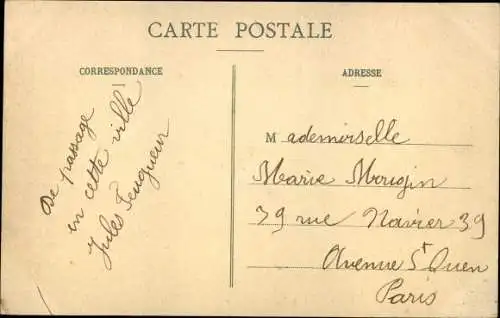 CARTE POSTALE
CORRESPONDANCE
De passage
en cette ville
Jules
ADRESSE
Mademoiselle
Marie
39 rue Navier 39
Avenue St Ouen
Paris